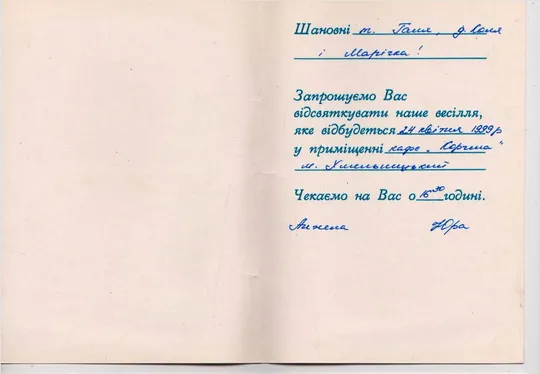 Шановні т. Галя, д. Коля
і Марічка!
Запрошуємо Вас
відсвяткувати наше весілля,
яке відбудеться 24 квітня 1999 р
у приміщенні кафе „Корчма"
м. Хмельницький
Чекаємо на Вас о 16³⁰ годині.
Анжела Юра